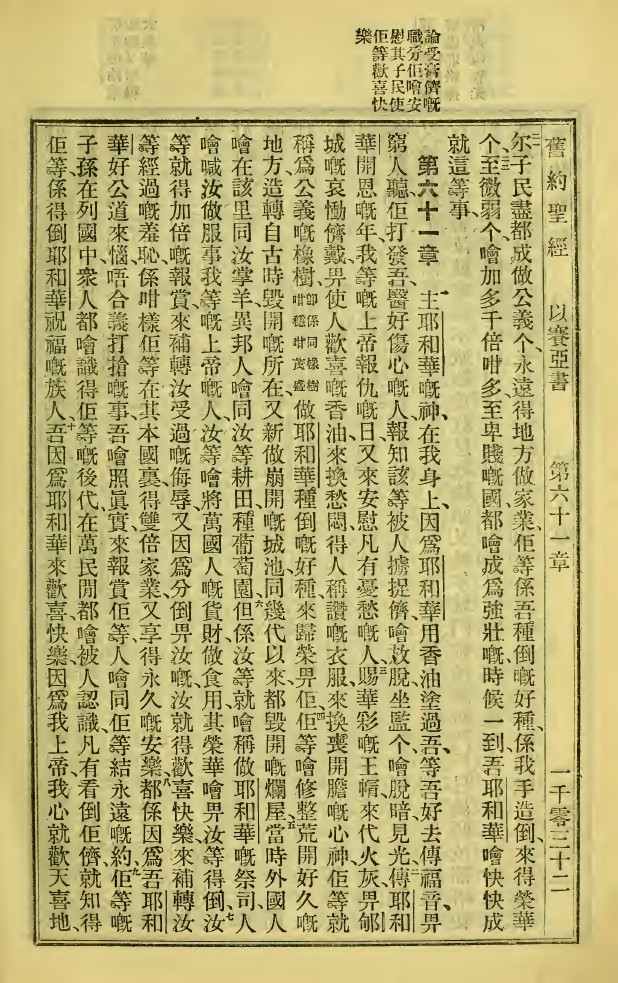 論受膏儕嘅
職分佢噲安
慰其子民使
佢等歡喜快
樂
舊約聖經 以賽亞書 第六十一章 一千零三十二
尔子民盡都成做公義个、永遠得地方做家業、佢等係吾種倒嘅好種、係我手造倒、來得榮華
个、至微弱个、噲加多千倍、咁多、至卑賤嘅國、都噲成為強壯、嘅時候一到、吾耶和華噲快快成
就這等事、
第六十一章 主耶和華嘅神、在我身上、因為耶和華用香油塗過吾、等吾好去傳福音畀
窮人聽、佢打發吾、醫好傷心嘅人、報知該等被人擄捉儕、噲放脫、坐監个、噲脫暗見光、傳耶和
華開恩嘅年、我等嘅上帝報仇嘅日、又來安慰凡有憂愁嘅人、賜華彩嘅王帽、來代火灰、畀郇
城嘅哀慟儕戴、畀使人歡喜嘅香油、來換愁悶、得人稱讚嘅衣服、來換喪開膽嘅心神、佢等就
稱為公義嘅橡樹、卽係同橡樹咁穩咁茂盛做耶和華種倒嘅好種、來歸榮畀佢、佢等噲修整荒開好久嘅
地方、造轉自古時毀開嘅所在、又新做崩開嘅城池、同幾代以來都毀開嘅爛屋、當時外國人
噲在該里同汝掌羊、異邦人噲同汝等耕田、種葡萄園、但係汝等就噲稱做耶和華嘅祭司、人
噲喊汝做服事我等嘅上帝嘅人、汝等噲將萬國人嘅貨財做食用、其榮華噲畀汝等得倒、汝
等就得加倍嘅報賞、來補轉汝受過嘅侮辱、又因為分倒畀汝嘅、汝就得歡喜快樂、來補轉汝
等經過嘅羞恥、係咁樣、佢等在其本國裏、得雙倍家業、又享得永久嘅安樂、都係因為吾耶和
華好公道、來惱唔合義打搶嘅事、吾噲照眞實來報賞佢等人、噲同佢等結永遠嘅約、佢等嘅
子孫、在列國中、衆人都噲識得、佢等嘅後代、在萬民開、都噲被人認識、凡有看倒佢儕、就知得
佢等係得倒耶和華祝福嘅族人、吾因為耶和華來歡喜快樂、因為我上帝、我心就歡天喜地、